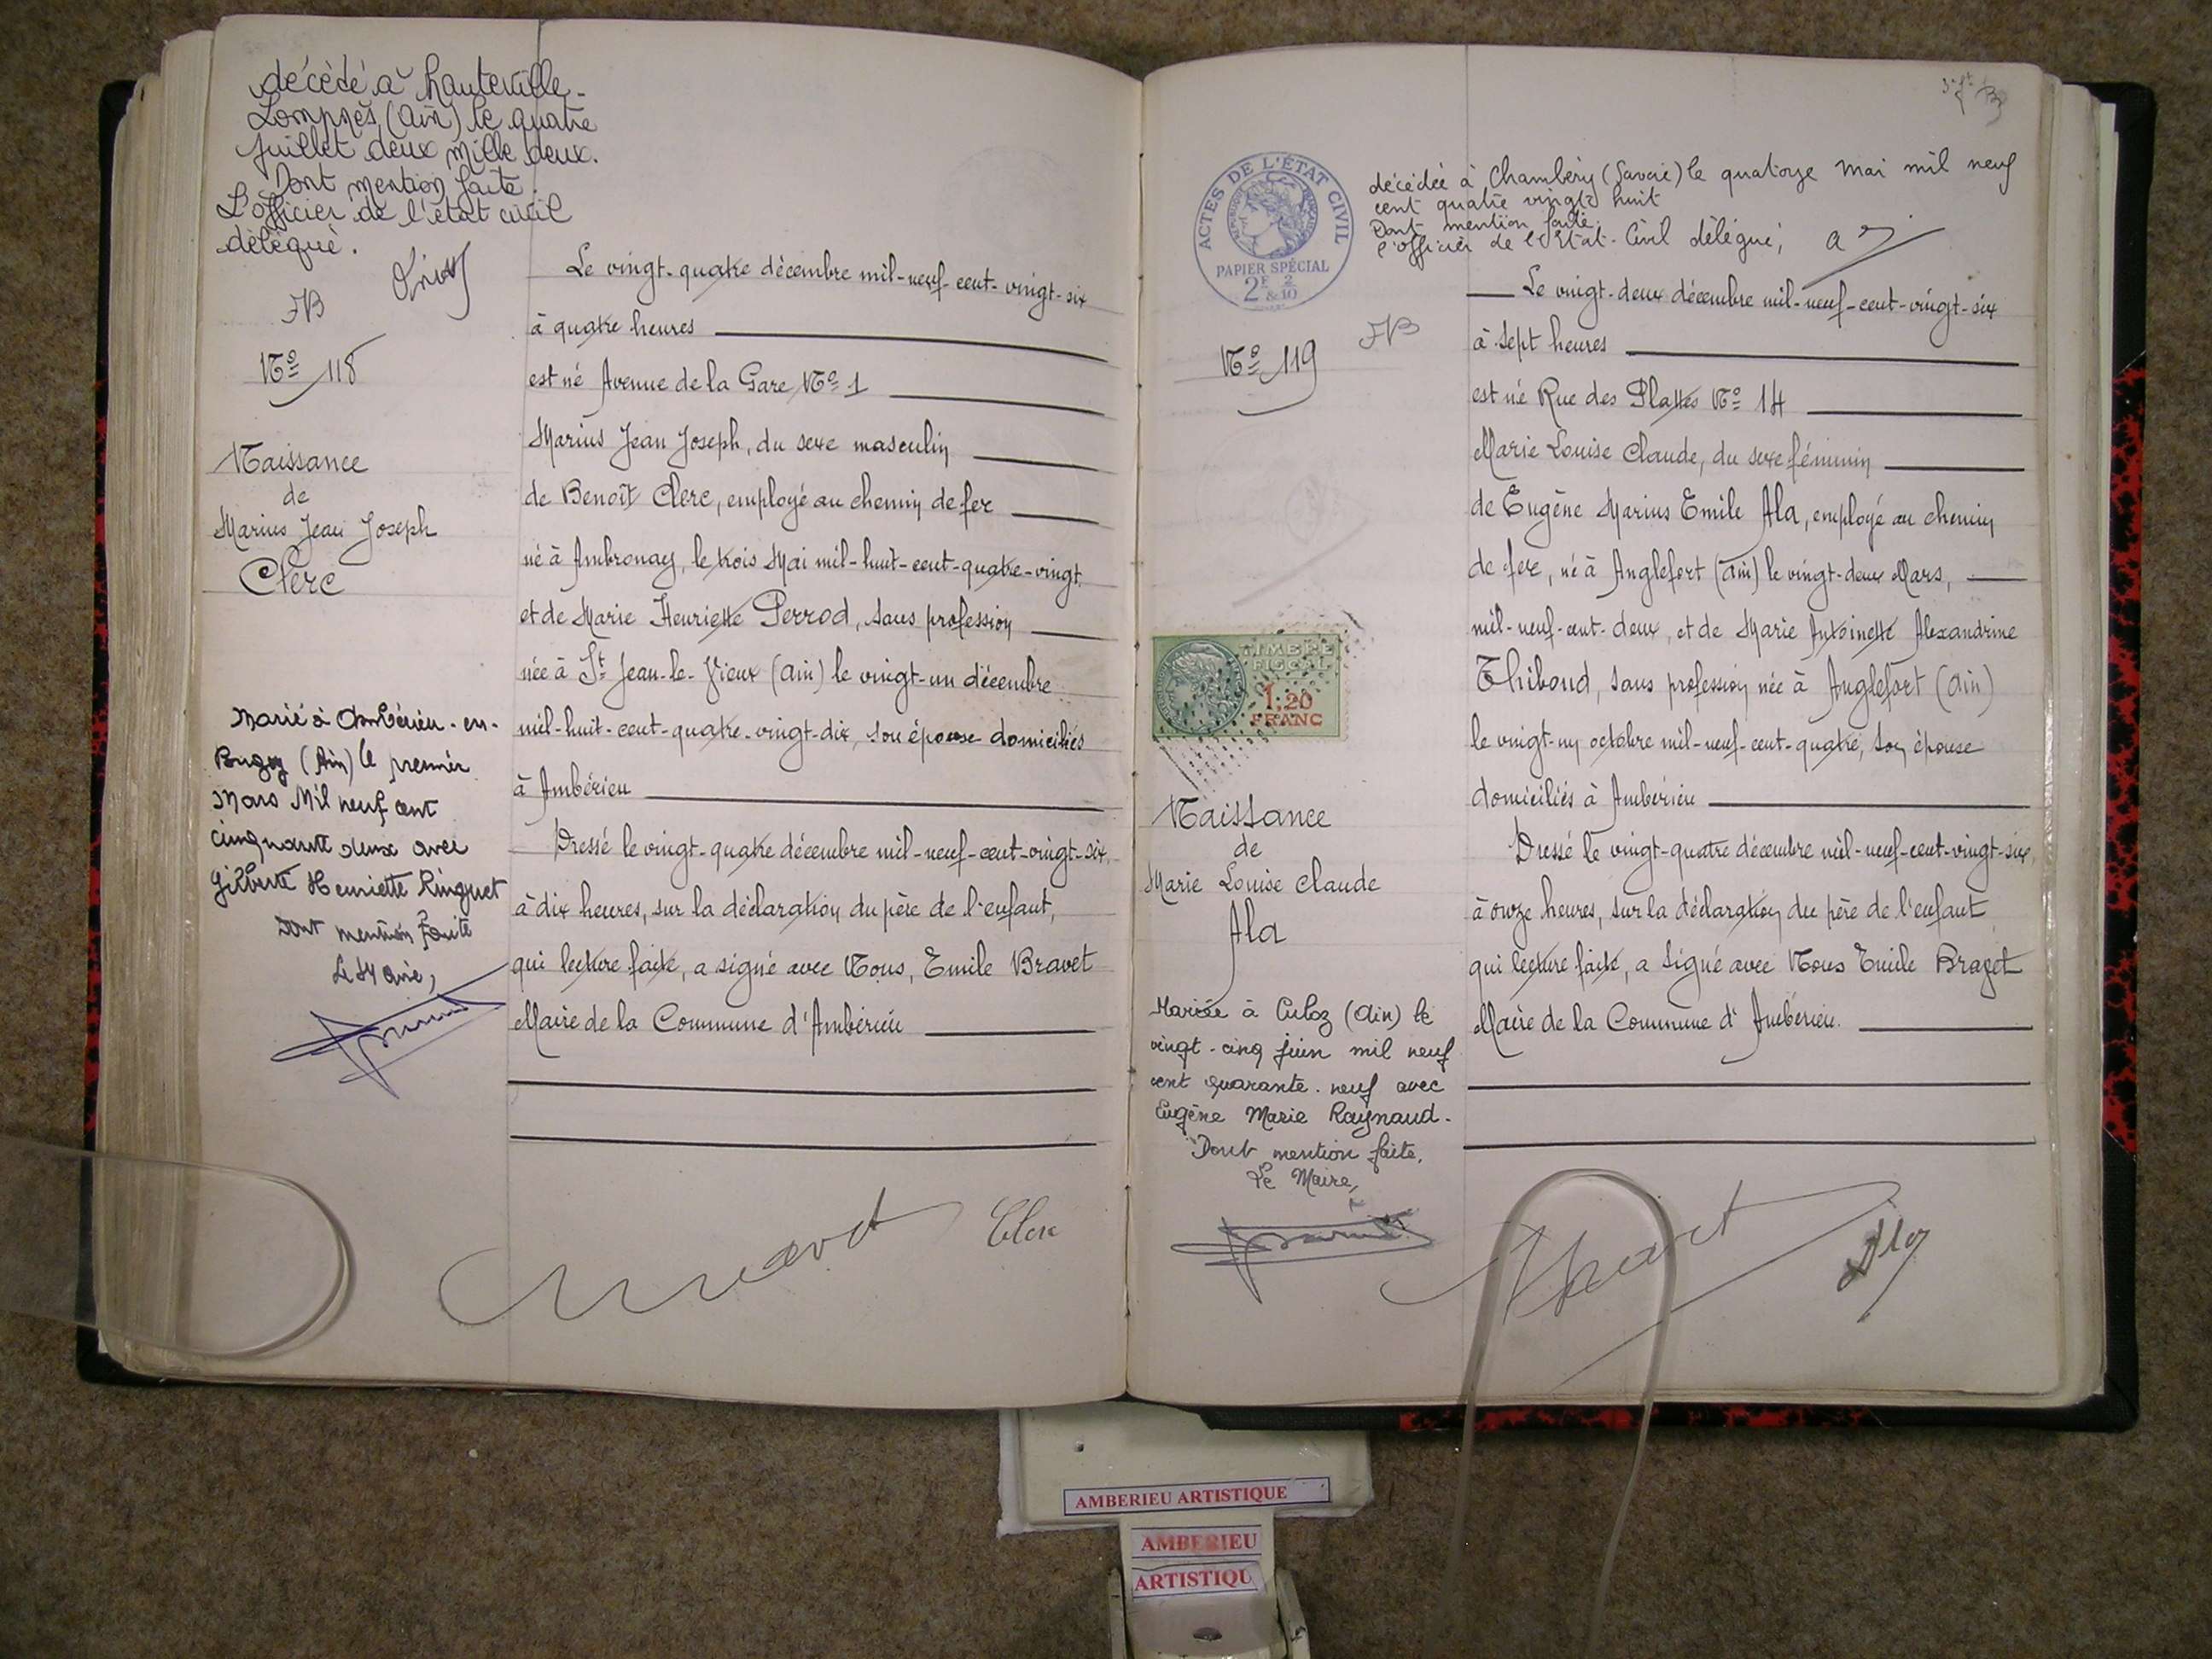 décédé à Hauteville-
Lompnès (Ain) le quatre
juillet deux mille deux.
Dont mention faite.
L'officier de l'état civil
délégué.
JB
No 118
Naissance
de
Marius Jean Joseph
Clerc
Marié à Ambérieu-en-
Bugey (Ain) le premier
Mars Mil neuf cent
cinquante deux avec
Gilberte Henriette Ringuet
Dont mention faite
Le Maire,
Le vingt-quatre décembre mil-neuf-cent-vingt-six
à quatre heures
est né Avenue de la Gare No 1
Marius Jean Joseph, du sexe masculin
de Benoît Clerc, employé au chemin de fer
né à Ambronay, le trois Mai mil-huit-cent-quatre-vingt
et de Marie Henriette Perrod, sans profession
née à St Jean-le-Vieux (Ain) le vingt-un décembre
mil-huit-cent-quatre-vingt-dix, son épouse domiciliés
à Ambérieu
Dressé le vingt-quatre décembre mil-neuf-cent-vingt-six,
à dix heures, sur la déclaration du père de l'enfant,
qui lecture faite, a signé avec Nous, Emile Bravet
Maire de la Commune d'Ambérieu
Bravet
Clerc
ACTES DE L'ÉTAT CIVIL
PAPIER SPÉCIAL
2F 2
&10
décédée à Chambéry (Savoie) le quatorze mai mil neuf
cent quatre vingt huit
Dont mention faite
l'officier de l'Etat-Civil délégué,
JB
No 119
TIMBRE
FISCAL
1,20
FRANC
Naissance
de
Marie Louise Claude
Ala
Mariée à Culoz (Ain) le
vingt-cinq juin mil neuf
cent quarante-neuf avec
Eugène Marie Raynaud.
Dont mention faite,
Le Maire,
Le vingt-deux décembre mil-neuf-cent-vingt-six
à sept heures
est né Rue des Plattes No 14
Marie Louise Claude, du sexe féminin
de Eugène Marius Emile Ala, employé au chemin
de fer, né à Anglefort (Ain) le vingt-deux Mars,
mil-neuf-cent-deux, et de Marie Antoinette Alexandrine
Thiboud, sans profession née à Anglefort (Ain)
le vingt-un octobre mil-neuf-cent-quatre, son épouse
domiciliés à Ambérieu
Dressé le vingt-quatre décembre mil-neuf-cent-vingt-six,
à onze heures, sur la déclaration du père de l'enfant
qui lecture faite, a signé avec Nous Emile Bravet
Maire de la Commune d'Ambérieu.
Bravet
Ala
AMBERIEU ARTISTIQUE
AMBERIEU
ARTISTIQU